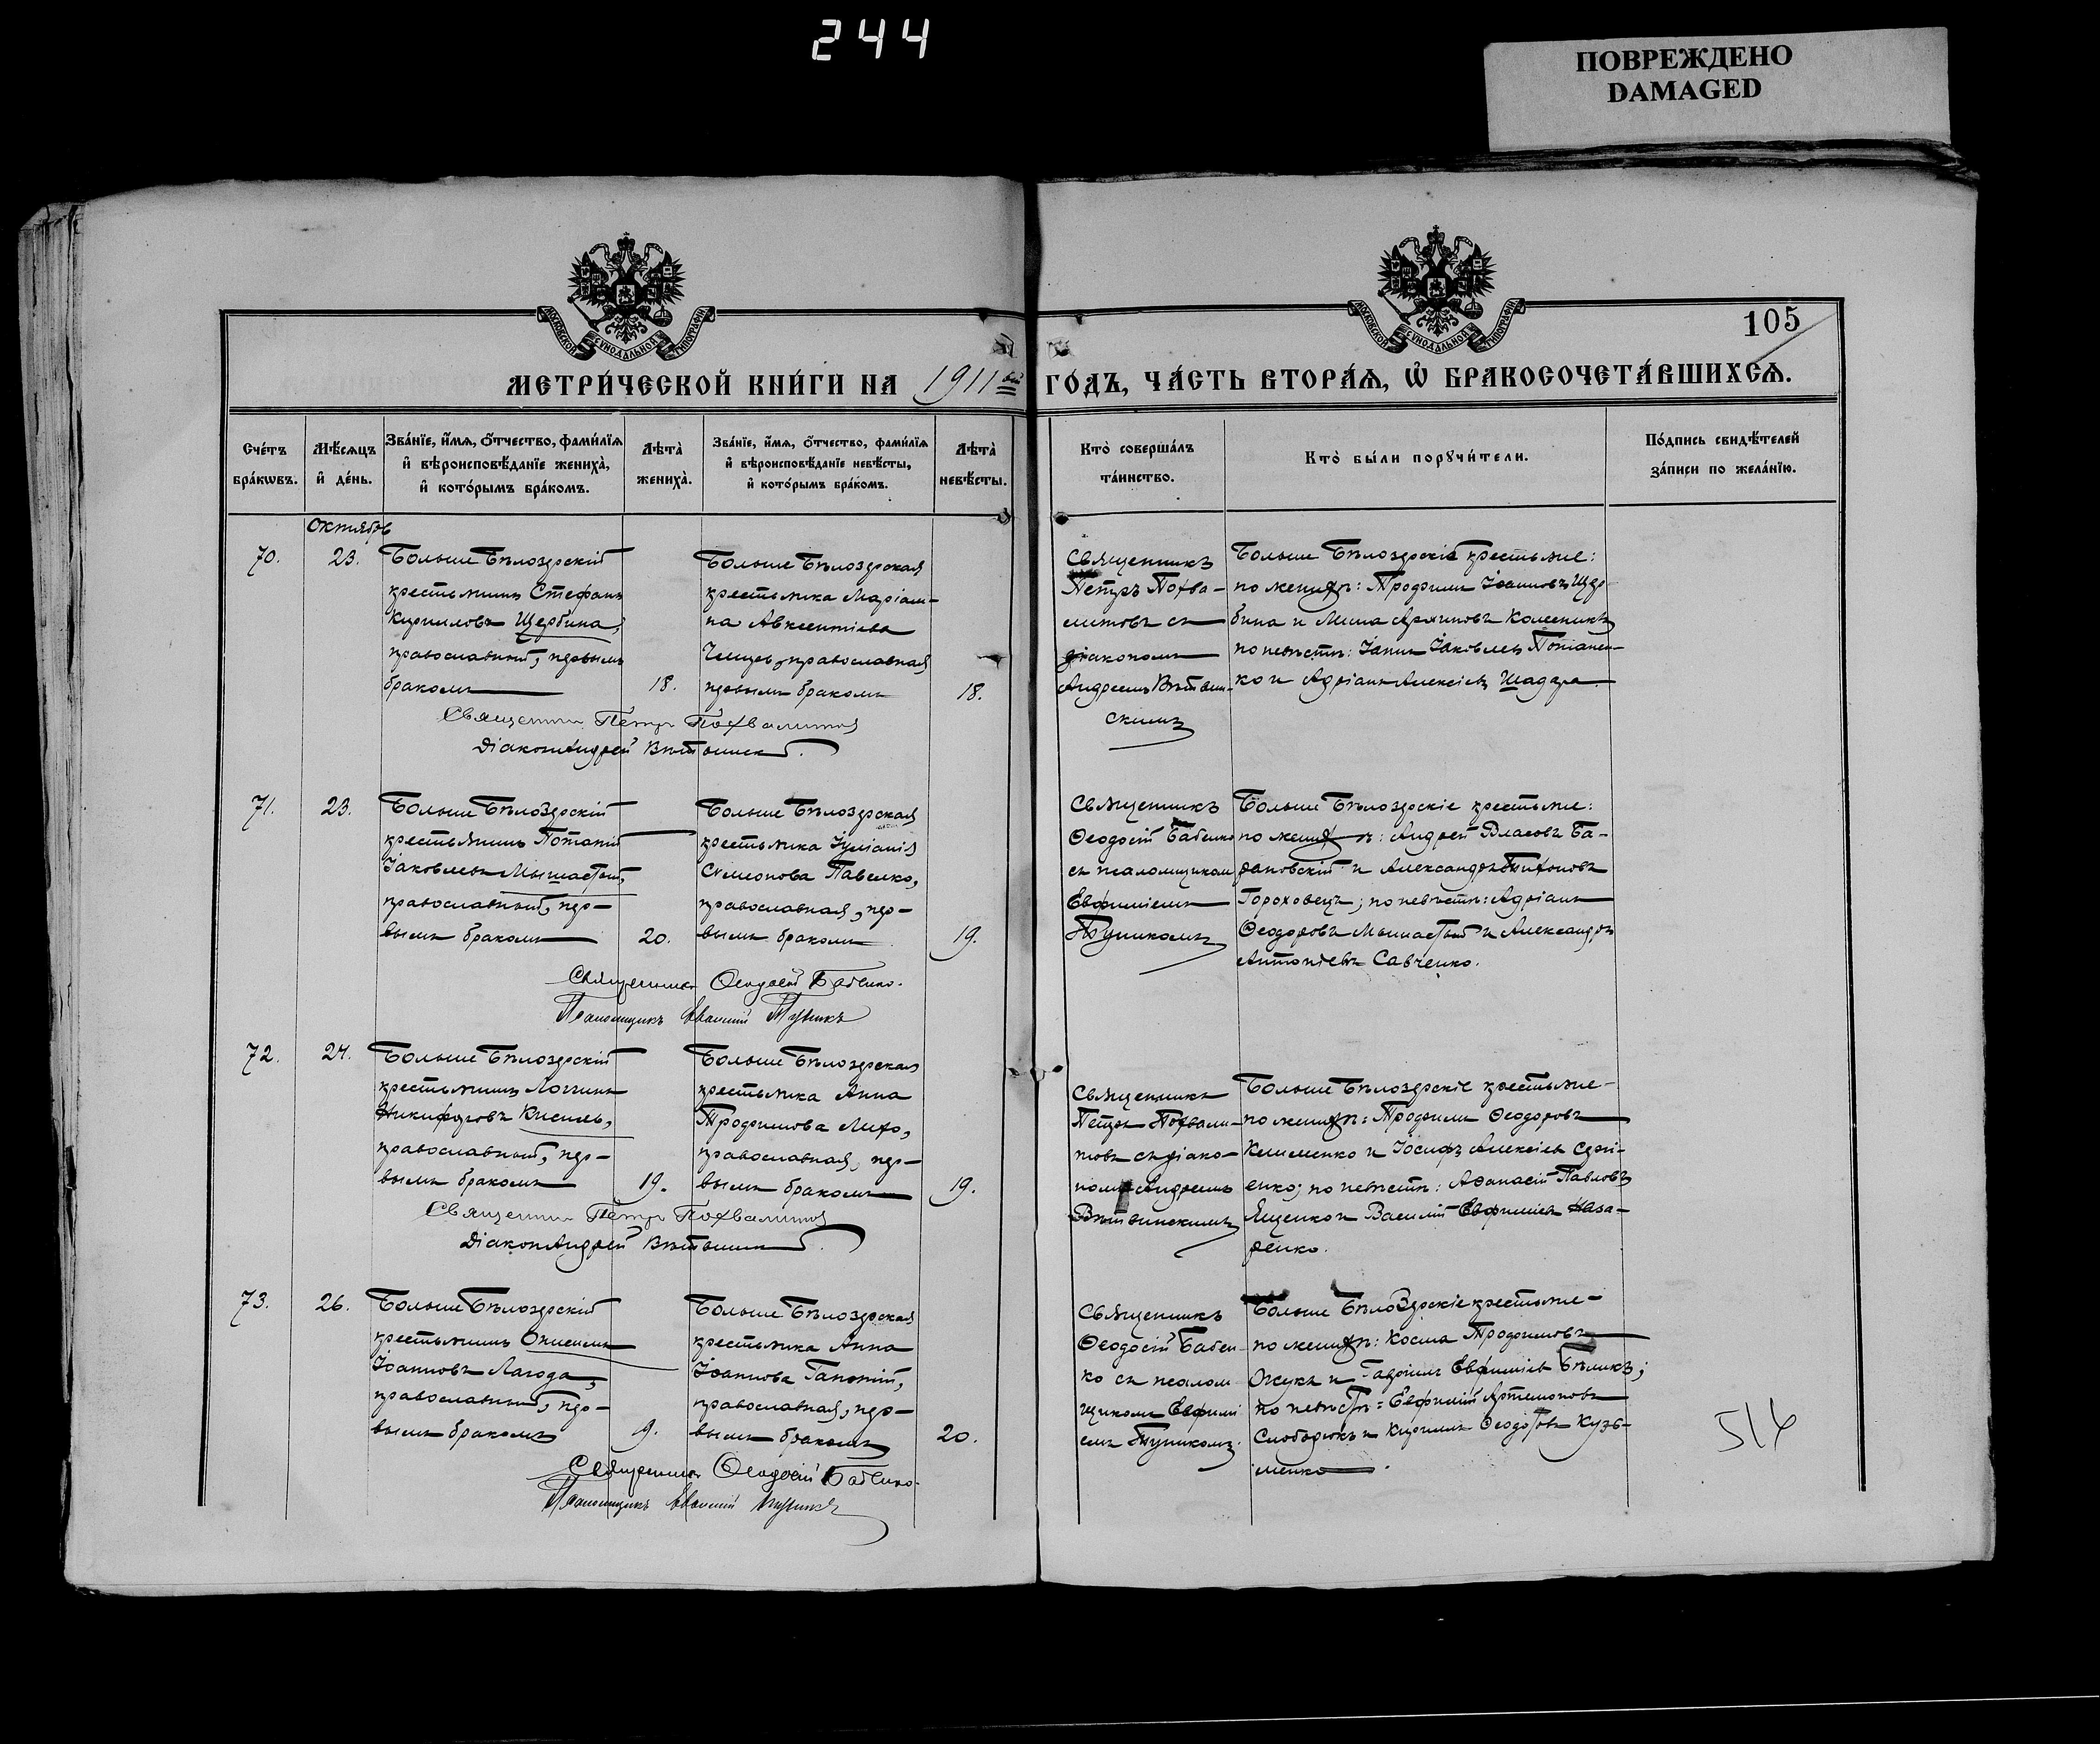 244
ПОВРЕЖДЕНО
DAMAGED
МОСКОВСКОЙ СѴНОДАЛЬНОЙ ТИПОГРАФІИ
МОСКОВСКОЙ СѴНОДАЛЬНОЙ ТИПОГРАФІИ
105
МЕТРИ́ЧЕСКОЙ КНИ́ГИ НА 1911ый ГО́ДЪ, ЧА́СТЬ ВТОРА́Ѧ, Ѡ҆ БРАКОСОЧЕТА́ВШИХСѦ.
Сче́тъ
бра́кѡвъ.
Мѣ́сѧцъ
и҆ де́нь.
Зва́нїе, и҆́мѧ, ѻ҆́тчество, фами́лїѧ
и҆ вѣроисповѣ́данїе жениха̀,
и҆ кото́рымъ бра́комъ.
Лѣ́та̀
жениха̀.
Зва́нїе, и҆́мѧ, ѻ҆́тчество, фами́лїѧ
и҆ вѣроисповѣ́данїе невѣ́сты,
и҆ кото́рымъ бра́комъ.
Лѣ́та̀
невѣ́сты.
Кто̀ соверша́лъ
та́инство.
Кто̀ бы́ли порꙋчи́тели.
По́дпись свидѣ́телей
за́писи по жела́нїю.
Октябрь
70.
23.
Больше Бѣлозерскій
крестьянинъ Стефанъ
Кирилловъ Щербина,
православный, первымъ
бракомъ
18.
Больше Бѣлозерская
крестьянка Маріам-
на Авксентіева
православная
первымъ бракомъ
18.
Священникъ
Петръ Похва-
литовъ съ
діакономъ
Андреемъ Вѣтвин-
скимъ
Больше Бѣлозерскіе крестьяне:
по женихѣ: Трофимъ Іоанновъ Щер-
бина и Колесникъ
по невѣстѣ: Іаковлевъ Потапен-
ко и Адріанъ Алексіевъ Шадура
Священникъ Петръ Похвалитовъ
Діаконъ Андрей Вѣтвинскій.
71.
23.
Больше Бѣлозерскій
крестьянинъ Потапій
Іаковлевъ Мышастый,
православный, пер-
вымъ бракомъ
20.
Больше Бѣлозерская
крестьянка Іуліанія
Сѵмеонова Павелко,
православная, пер-
вымъ бракомъ
19.
Священникъ
Ѳеодосій Бабенко
съ псаломщикомъ
Евфиміемъ
Тупикомъ
Больше Бѣлозерскіе крестьяне:
по женихѣ: Андрей Власовъ Ба-
рановскій и Александръ Тихоновъ
Гороховецъ; по невѣстѣ: Адріанъ
Ѳеодоровъ Мышастый и Александръ
Антоніевъ Савченко.
Священникъ Ѳеодосій Бабенко.
Псаломщикъ Евфимій Тупикъ
72.
24.
Больше Бѣлозерскій
крестьянинъ Логгинъ
Никифоровъ Кисиль,
православный, пер-
вымъ бракомъ
19.
Больше Бѣлозерская
крестьянка Анна
Трофимова Лихо,
православная, пер-
вымъ бракомъ
19.
Священникъ
Петръ Похвали-
товъ съ діако-
номъ Андреемъ
Вѣтвинскимъ
Больше Бѣлозерскіе крестьяне-
по женихѣ: Трофимъ Ѳеодоровъ
Клименко и Іосифъ Алексіевъ Серги-
енко; по невѣстѣ: Аѳанасій Павловъ
Яценко и Василій Евфиміевъ Наза-
ренко.
Священникъ Петръ Похвалитовъ
Діаконъ Андрей Вѣтвинскій.
73.
26.
Больше Бѣлозерскій
крестьянинъ Онисимъ
Іоанновъ Лагода,
православный, пер-
вымъ бракомъ
9.
Больше Бѣлозерская
крестьянка Анна
Іоаннова Гапотій,
православная, пер-
вымъ бракомъ
20.
Священникъ
Ѳеодосій Бабен-
ко съ псалом
щикомъ Евфимі
емъ Тупикомъ.
Больше Бѣлозерскіе крестьяне-
по женихѣ: Косма Трофимовъ
и Гавріилъ Евфиміевъ Бѣликъ;
по невѣстѣ: Евфимій Артемоновъ
Слободюкъ и Кириллъ Ѳеодотовъ Кузь-
менко.
Священникъ Ѳеодосій Бабенко.
Псаломщикъ Евфимій Тупикъ
514